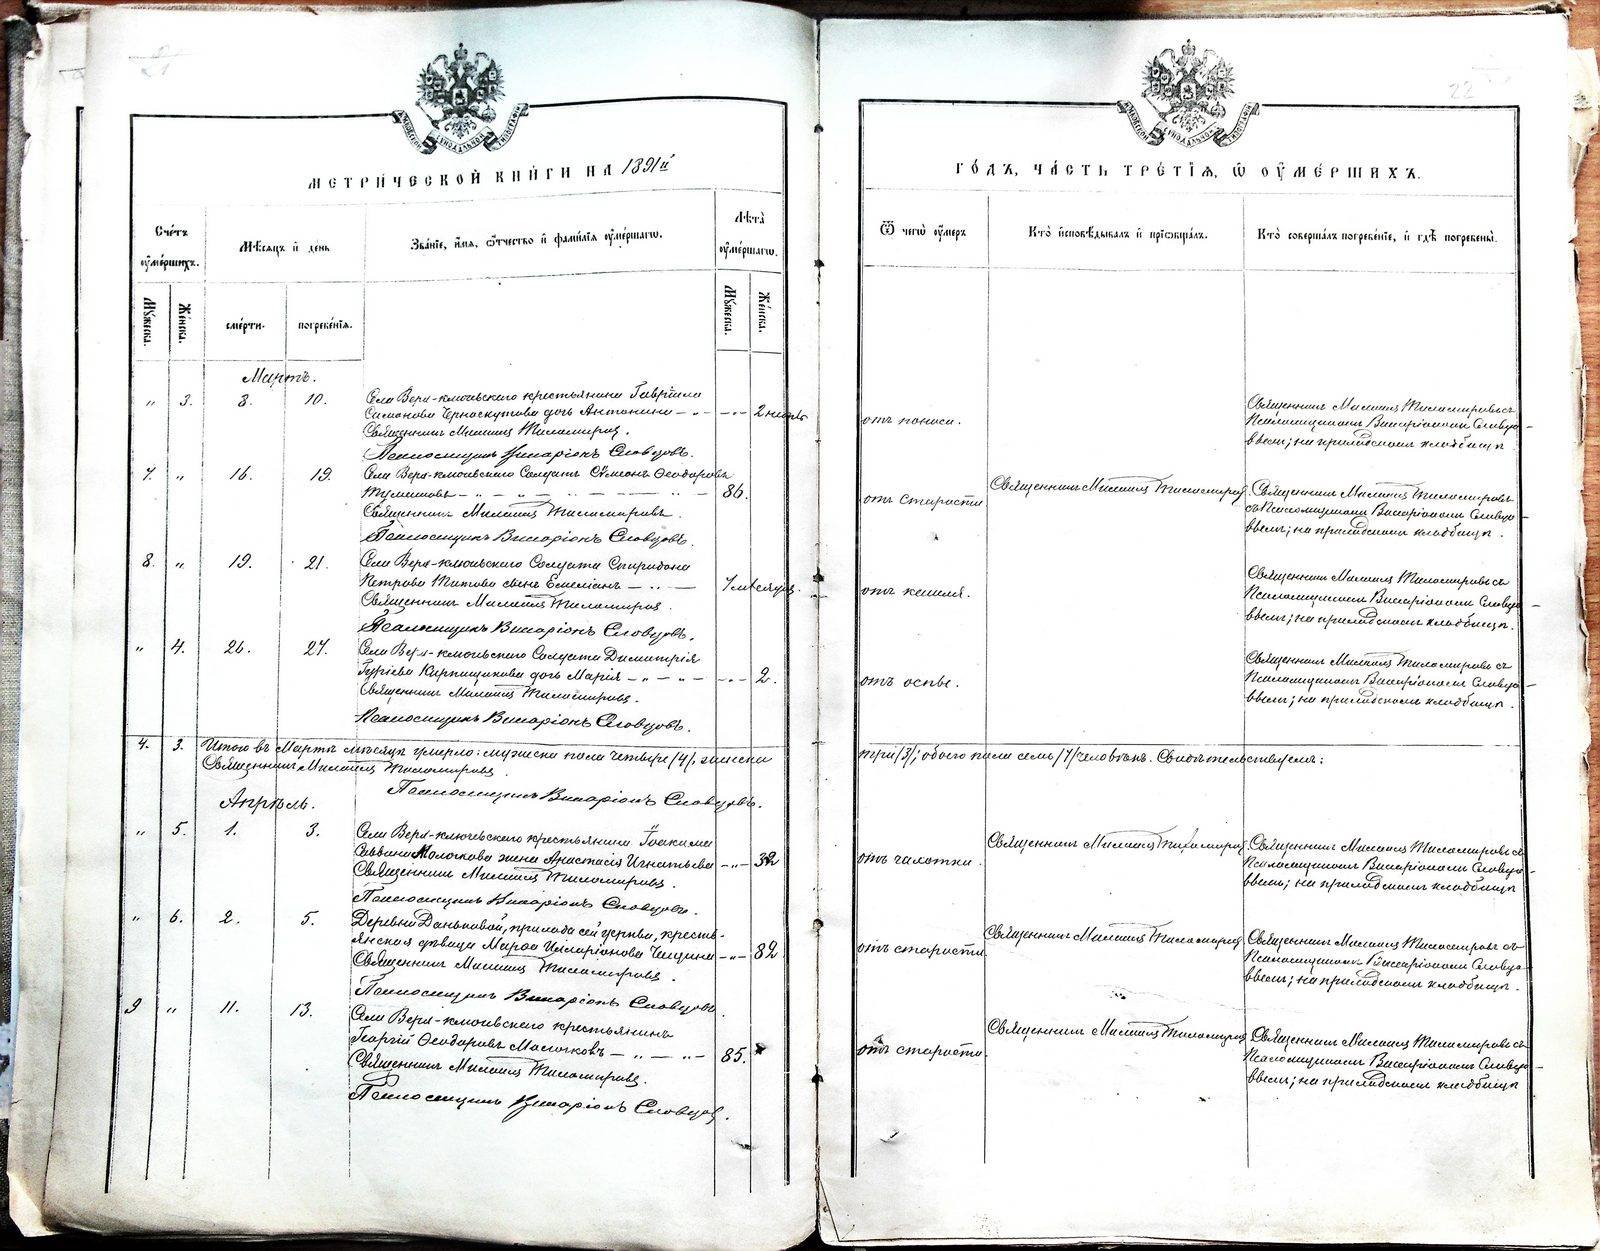 21
МЕТРИЧЕСКОЙ КНИГИ НА 1891й
Счетъ оумершихъ.
Мѣсяцъ и день
Званіе, имя, отчество и фамилія оумершаго.
Лѣта оумершаго.
Мужеска.
Женска.
смерти.
погребенія.
Мужеска.
Женска.
Мартъ.
„ 3. 8. 10. Села Верх-ключевскаго крестьянина Гавріила
Симонова Черноскутова дочь Антонина — „ — — „ — 2 недѣль
Священникъ Михаилъ Тихомировъ.
Псаломщикъ Виссаріонъ Словцовъ.
7. „ 16. 19. Села Верх-ключевскаго Солдатъ Сѵмеонъ Ѳеодоровъ
86.
Священникъ Михаилъ Тихомировъ.
Псаломщикъ Виссаріонъ Словцовъ.
8. „ 19. 21. Села Верх-ключевскаго Солдата Спиридона
Петрова Титова сынъ Емеліанъ — „ — 7 мѣсяцев.
Священникъ Михаилъ Тихомировъ.
Псаломщикъ Виссаріонъ Словцовъ.
„ 4. 26. 27. Села Верх-ключевскаго Солдата Димитрія
Гурьева Кирпищикова дочь Марія — „ — „ — — „ — 2.
Священникъ Михаилъ Тихомировъ.
Псаломщикъ Виссаріонъ Словцовъ.
4. 3. Итого въ Мартѣ мѣсяцѣ умерло: мужеска пола четыре /4/, женска
Священникъ Михаилъ Тихомировъ.
Псаломщикъ Виссаріонъ Словцовъ.
Апрѣль.
„ 5. 1. 3. Села Верх-ключевскаго крестьянина Іоакима
Саввина Молокова жена Анастасія Игнатьева — „ — 32
Священникъ Михаилъ Тихомировъ.
Псаломщикъ Виссаріонъ Словцовъ.
„ 6. 2. 5. Деревни Даньковой, прихода сей церкви, кресть-
янская дѣвица Марѳа Илларіонова — „ — 82
Священникъ Михаилъ Тихомировъ.
Псаломщикъ Виссаріонъ Словцовъ.
9 „ 11. 13. Села Верх-ключевскаго крестьянинъ
Георгій Ѳеодоровъ — „ — „ — 85.
Священникъ Михаилъ Тихомировъ.
Псаломщикъ Виссаріонъ Словцовъ.
22
ГОДЪ, ЧАСТЬ ТРЕТІЯ, Ѿ ОУМЕРШИХЪ.
Ѿ чего оумеръ
Кто исповѣдывалъ и пріобщалъ.
Кто совершалъ погребеніе, и гдѣ погребены.
отъ поноса.
Священникъ Михаилъ Тихомировъ съ
Псаломщикомъ Виссаріономъ Словцо-
вымъ; на приходскомъ кладбищѣ
отъ старости
Священникъ Михаилъ Тихомировъ.
Священникъ Михаилъ Тихомировъ
съ Псаломщикомъ Виссаріономъ Словцо-
вымъ; на приходскомъ кладбищѣ.
отъ кашля.
Священникъ Михаилъ Тихомировъ съ
Псаломщикомъ Виссаріономъ Словцо-
вымъ; на приходскомъ кладбищѣ.
отъ оспы.
Священникъ Михаилъ Тихомировъ съ
Псаломщикомъ Виссаріономъ Словцо-
вымъ; на приходскомъ кладбищѣ.
три /3/; обоего пола семь /7/ человѣкъ. Свидѣтельствуемъ:
отъ чахотки.
Священникъ Михаилъ Тихомировъ
Священникъ Михаилъ Тихомировъ съ
Псаломщикомъ Виссаріономъ Словцо-
вымъ; на приходскомъ кладбищѣ
отъ старости.
Священникъ Михаилъ Тихомировъ
Священникъ Михаилъ Тихомировъ съ
Псаломщикомъ Виссаріономъ Словцо-
вымъ; на приходскомъ кладбищѣ.
отъ старости.
Священникъ Михаилъ Тихомировъ
Священникъ Михаилъ Тихомировъ съ
Псаломщикомъ Виссаріономъ Словцо-
вымъ; на приходскомъ кладбищѣ